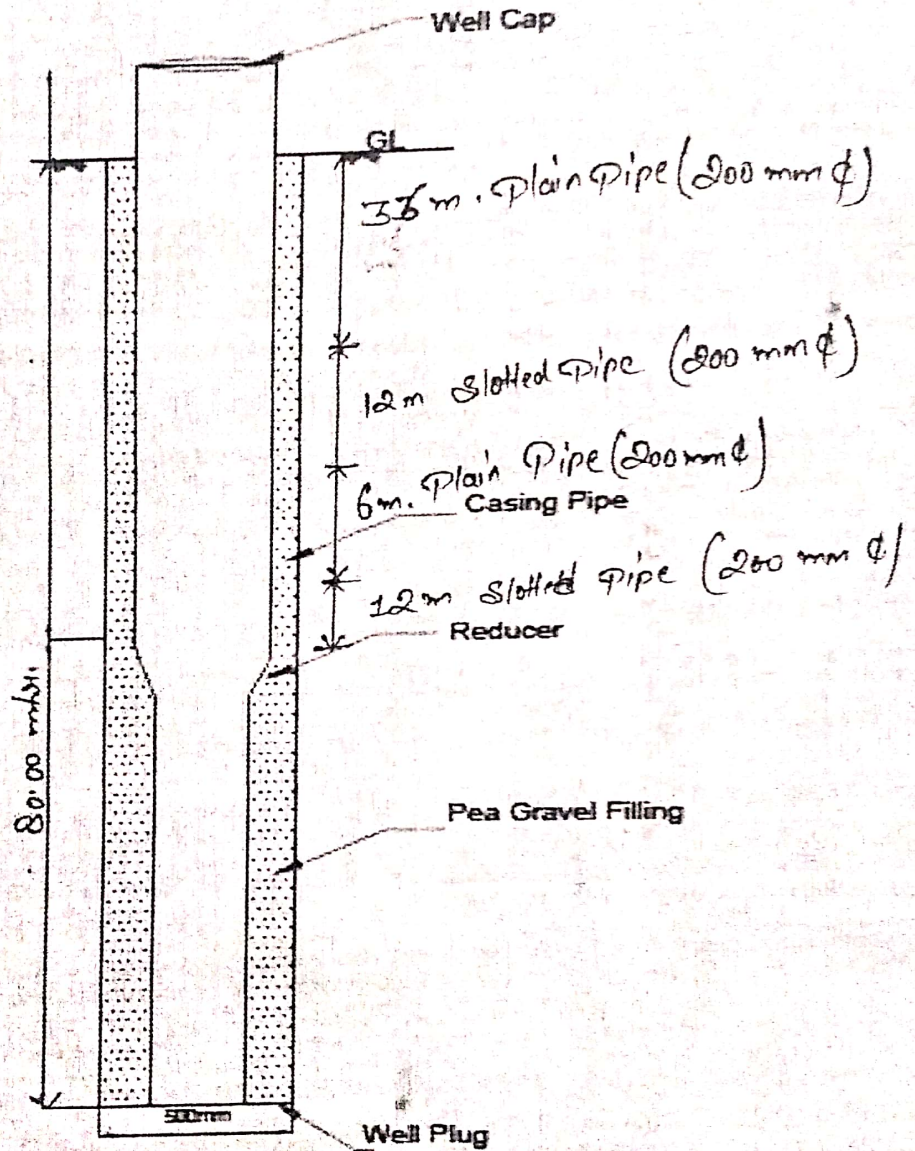 Well Cap
GL
m. Plain Pipe (200 mm ¢)
12m Slotted Pipe (200 mm ¢)
6m. Plain Pipe (200mm ¢)
Casing Pipe
12m Slotted Pipe (200 mm ¢)
Reducer
80.00
Pea Gravel Filling
500mm
Well Plug